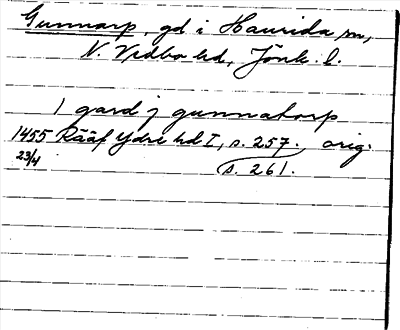 Gunnarp, gd i Haurida sn,
N. Vedbo hd, Jönk. l.
1 gard j gunnatorp
1455 Rääf Ydre hd I, s. 257. orig.
23/4 s. 261.